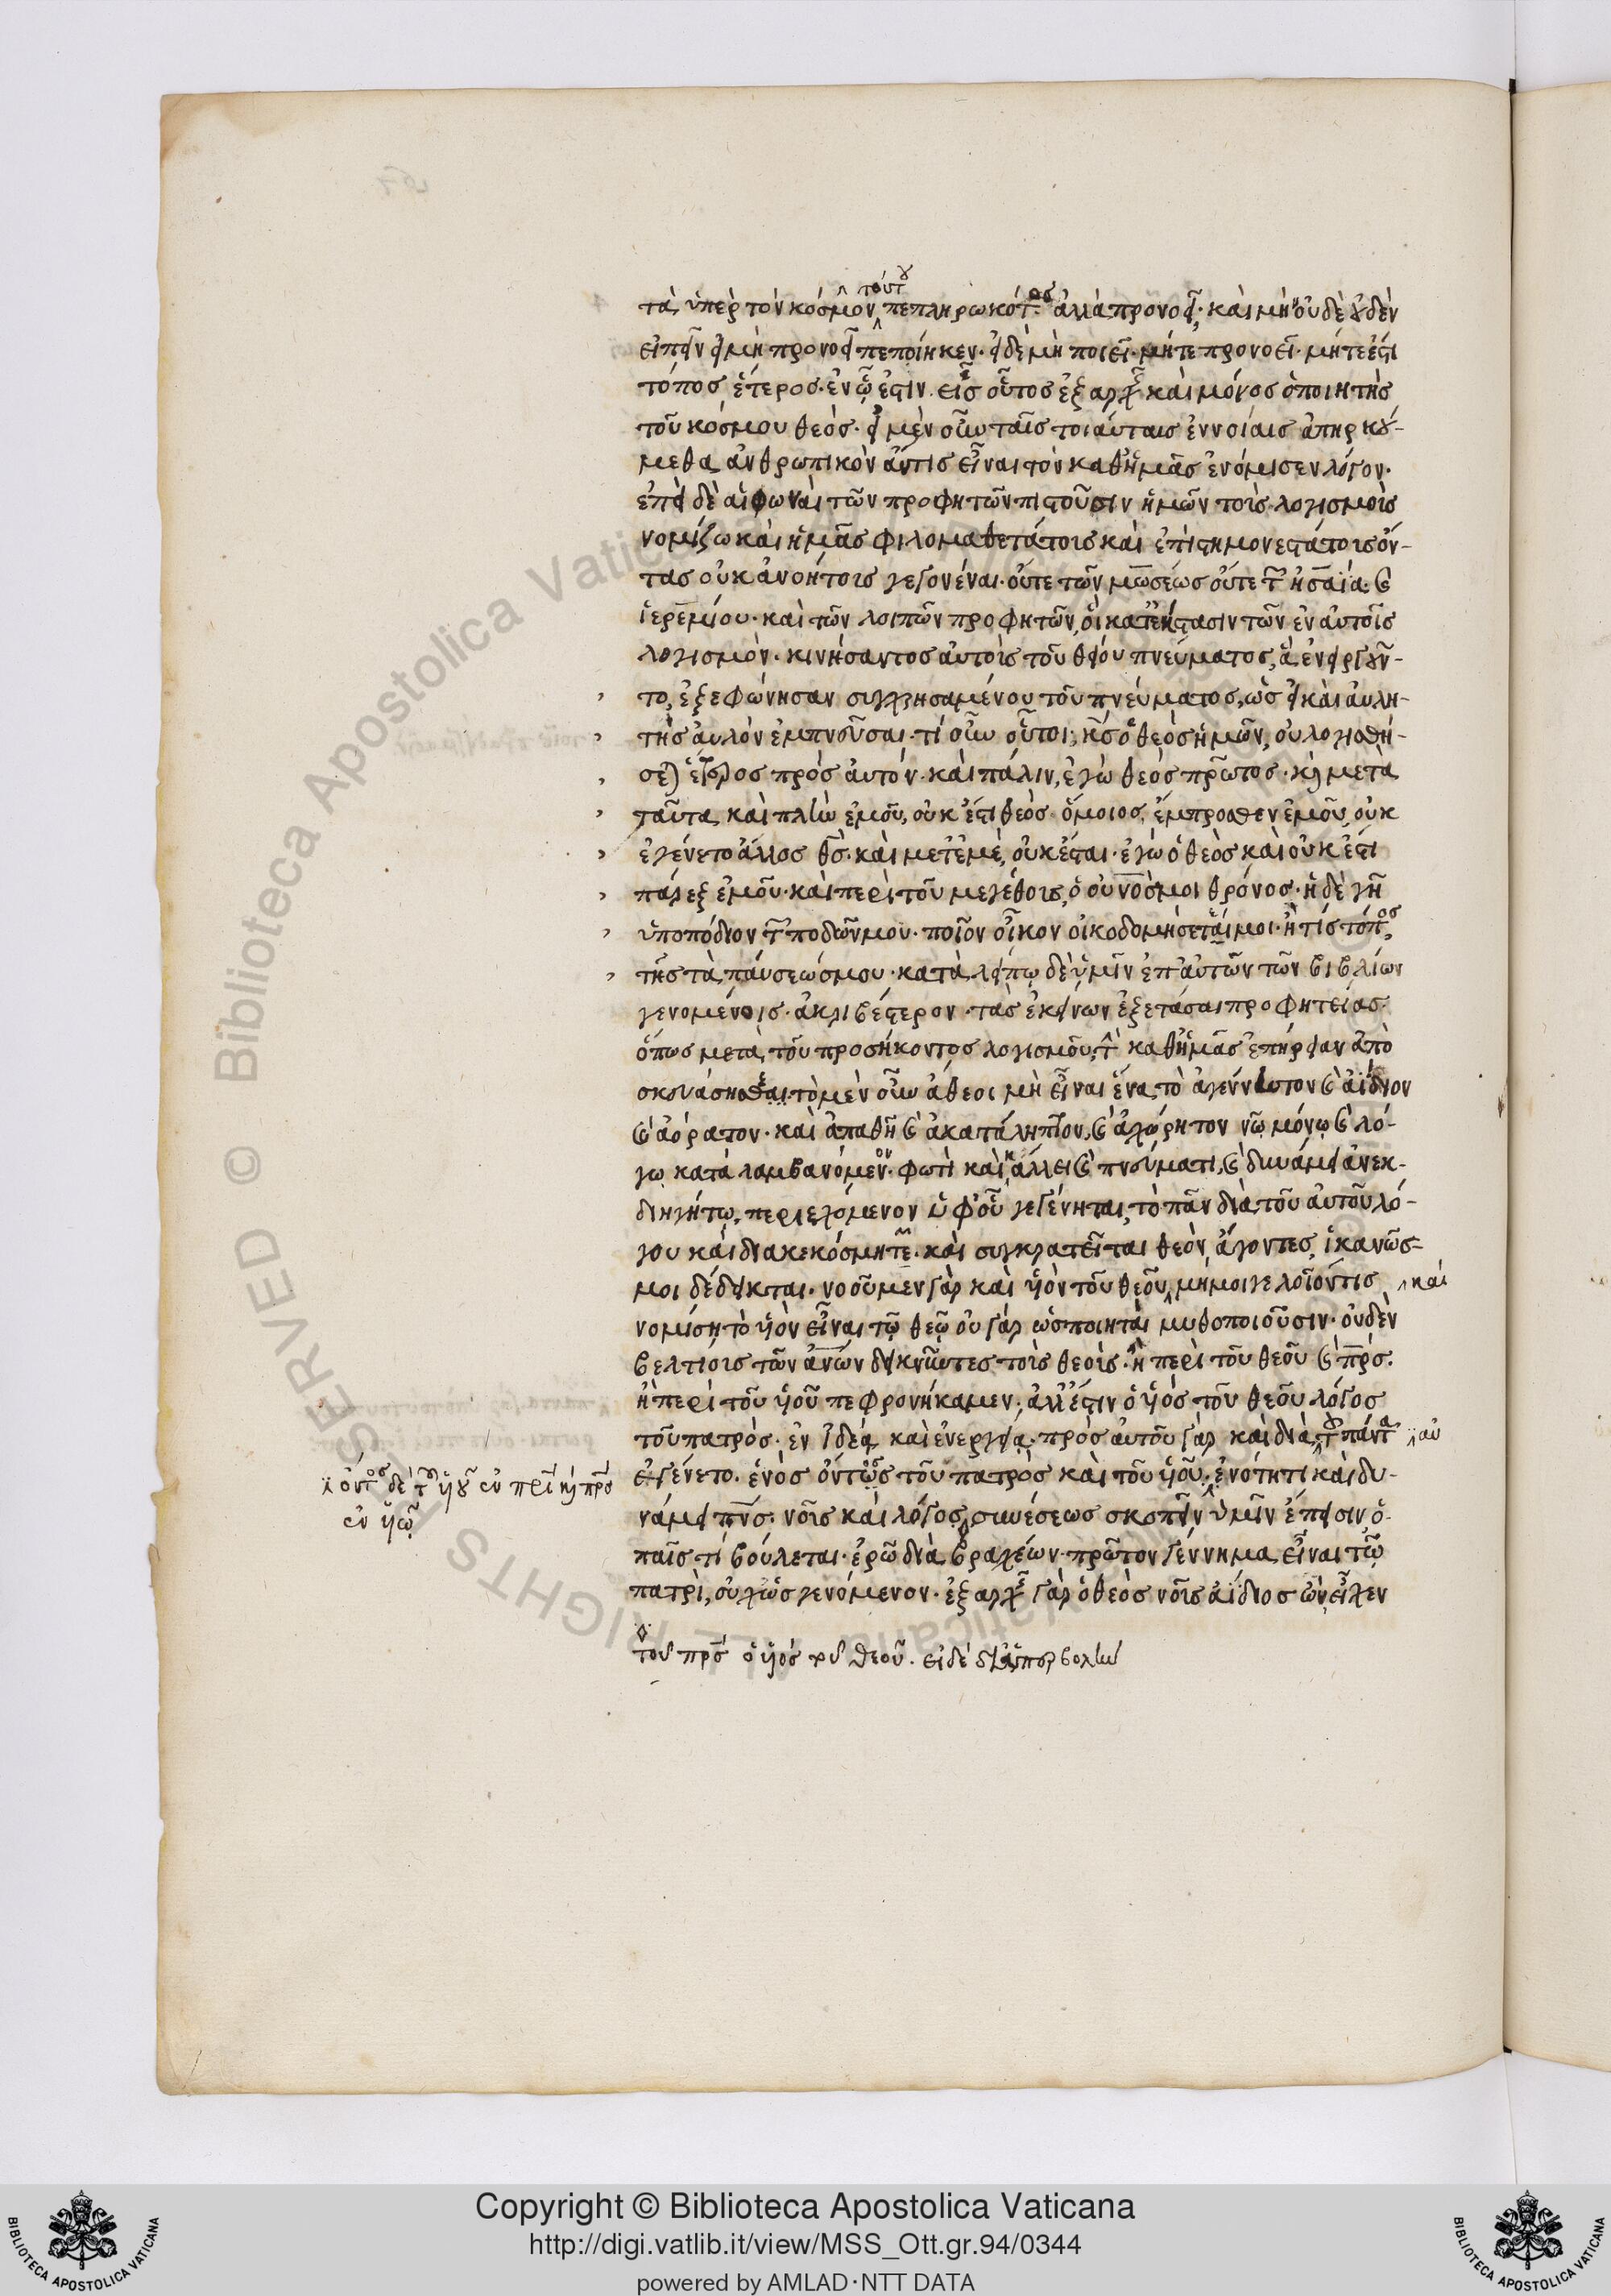 τούτου
τὰ ὑπὲρ τὸν κόσμον πεπληρωκότος· ἀλλὰ προνοεῖ· καὶ μὴν οὐδὲ οὐδὲν
εἰπεῖν εἰ μὴ προνοεῖ πεποίηκεν· εἰ δὲ μὴ ποιεῖ· μήτε προνοεῖ· μήτε ἐστι
τόπος ἕτερος· ἐν ᾧ ἐστιν· εἷς οὗτος ἐξ αρχῆς καὶ μόνος ὁ ποιητὴς
τοῦ κόσμου θεός· εἰ μὲν οὖν ταῖς τοιαύταις ἐννοίαις ἀπηρκού-
μεθα ἀνθρωπικὸν ἄν τις εἶναι τὸν καθ' ἡμᾶς ἐνόμισεν λόγον·
ἐπεὶ δὲ αἱ φωναὶ τῶν προφητῶν πιστοῦσιν ἡμῶν τοὺς λογισμοὺς
νομίζω καὶ ἡμᾶς φιλομαθετάτους καὶ ἐπιστημονεστάτους ὄν-
τας οὐκ ἀνοήτους γεγονέναι· οὔτε τῶν μωσέως οὔτε τοῦ ἠσαΐα καὶ
ἱερεμίου· καὶ τῶν λοιπῶν προφητῶν, οἳ κατ' ἔκστασιν τῶν ἐν αὐτοῖς
λογισμῶν· κινήσαντος αὐτοὺς τοῦ θείου πνεύματος, ἃ ἐνεργοῦν-
το, ἐξεφώνησαν συγχρησαμένου τοῦ πνεύματος, ὡς εἰ καὶ αὐλη-
τὴς αὐλὸν ἐμπνεῦσαι· τί οὖν οὗτοι; κς ὁ θεὸς ἡμῶν, οὐ λογισθή-
σεται ἕτερος πρὸς αὐτόν· καὶ πάλιν, ἐγὼ θεὸς πρῶτος· καὶ μετὰ
ταῦτα, καὶ πλὴν ἐμοῦ, οὐκ ἔστι θεὸς· ὅμοιος, ἔμπροσθεν ἐμοῦ, οὐκ
ἐγένετο ἄλλος θς· καὶ μετ' ἐμὲ, οὐκ ἔσται· ἐγὼ ὁ θεὸς καὶ οὐκ ἔστι
πάρεξ ἐμοῦ· καὶ περὶ τοῦ μεγέθους, ὁ ουνός μοι θρόνος· ἡ δὲ γῆ
ὑποπόδιον τῶν ποδῶν μου· ποῖον οἶκον οἰκοδομήσεταί μοι· ἢ τίς τόπος
τῆς καταπαύσεώς μου· καταλείπω δὲ ὑμῖν ἐπ' αὐτῶν τῶν βιβλίων
γενομένοις· ἀκριβέστερον· τὰς ἐκείνων ἐξετάσαι προφητείας·
ὅπως μετὰ τοῦ προσήκοντος λογισμοῦ, τὴν καθ' ἡμᾶς ἐπήρειαν ἀπο
σκευάσησθαι· τὸ μὲν οὖν ἄθεοι μὴ εἶναι ἕνα τὸ ἀγέννητον καὶ ἀΐδιον
καὶ ἀόρατον· καὶ ἀπαθῆ καὶ ἀκατάληπτον, καὶ ἀχώρητον νῷ μόνῳ καὶ λό-
γῳ καταλαμβανόμενον· φωτὶ καὶ κάλλει καὶ πνεύματι, καὶ δυνάμει ἀνεκ-
διηγήτῳ, περιεχόμενον ὑφ' οὗ γεγένηται, τὸ πᾶν διὰ τοῦ αὐτοῦ λό-
γου καὶ διακεκόσμηται· καὶ συγκρατεῖται θεὸν, ἄγοντες, ἱκανῶς
μοι δέδεικται· νοοῦμεν γὰρ καὶ υἱὸν τοῦ θεοῦ, μή μοι γελοῖόν τις καὶ
νομίσῃ τὸ υἱὸν εἶναι τῷ θεῷ οὐ γὰρ ὡς ποιηταὶ μυθοποιοῦσιν· οὐδὲν
βελτίους τῶν ἀνων δεικνύντες τοὺς θεούς· ἢ περὶ τοῦ θεοῦ καὶ πρς·
ἢ περὶ τοῦ υἱοῦ πεφρονήκαμεν· ἀλλ' ἔστιν ὁ υἱὸς τοῦ θεοῦ λόγος
τοῦ πατρὸς· ἐν ἰδέᾳ καὶ ἐνεργείᾳ· πρὸς αὐτοῦ γὰρ καὶ δι' αὐτοῦ πάντα
ἐγένετο· ἑνὸς ὄντος τοῦ πατρὸς καὶ τοῦ υἱοῦ· ἑνότητι καὶ δυ-
ὄντος δὲ τοῦ υἱοῦ ἐν πρι καὶ πρς
ἐν υἱῷ
νάμει πνς· νοῦς καὶ λόγος, συνέσεως σκοπεῖν ὑμῖν ἔπεισιν ὁ
παῖς τί βούλεται· ἐρῶ διὰ βραχέων· πρῶτον γέννημα εἶναι τῷ
πατρὶ, οὐχ ὡς γενόμενον· ἐξ αρχῆς γὰρ ὁ θεὸς νοῦς ἀΐδιος ὢν, εἶχεν
τοῦ πρς ὁ υἱὸς τοῦ θεοῦ· εἰ δὲ δι' ὑπερβολὴν
Copyright © Biblioteca Apostolica Vaticana
http://digi.vatlib.it/view/MSS_Ott.gr.94/0344
powered by AMLAD·NTT DATA